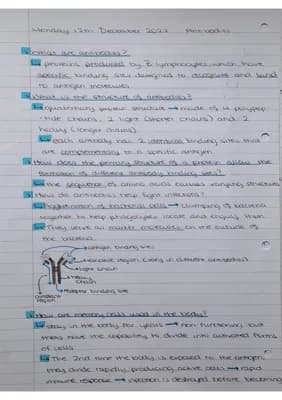 Monday 12th December 2022 Antibodies
What are antibodies?
↳ proteins produced by B lymphocytes which have
specific binding sites designed to recognise and bind
to antigen molecules
What is the structure of antibodies?
↳ quaternary protein structure → made of 4 polypep-
-tide chains, 2 light (shorter chains) and 2
heavy (longer chains).
↳ each antibody has 2 identical binding sites that
are complementary to a specific antigen
How does the primary structure of a protein allow the
formation of different antibody binding sites?
↳ the sequence of amino acids causes varying structures
How do antibodies help fight infections?
↳ Agglutination of bacterial cells → clumping of bacteria
together to help phagocytes locate and engulf them
↳ They serve as marker molecules on the outside of
the bacteria.
antigen binding sites
variable region (vary in different antibodies)
light chain
heavy
chain
receptor binding site
constant
region
How are memory cells used in the body?
↳ stay in the body for years → non functioning, but
they have the capability to divide into activated forms
of cells
↳ The 2nd time the body is exposed to the antigen,
they divide rapidly, producing active cells → rapid
immune response → infection is destroyed before becoming